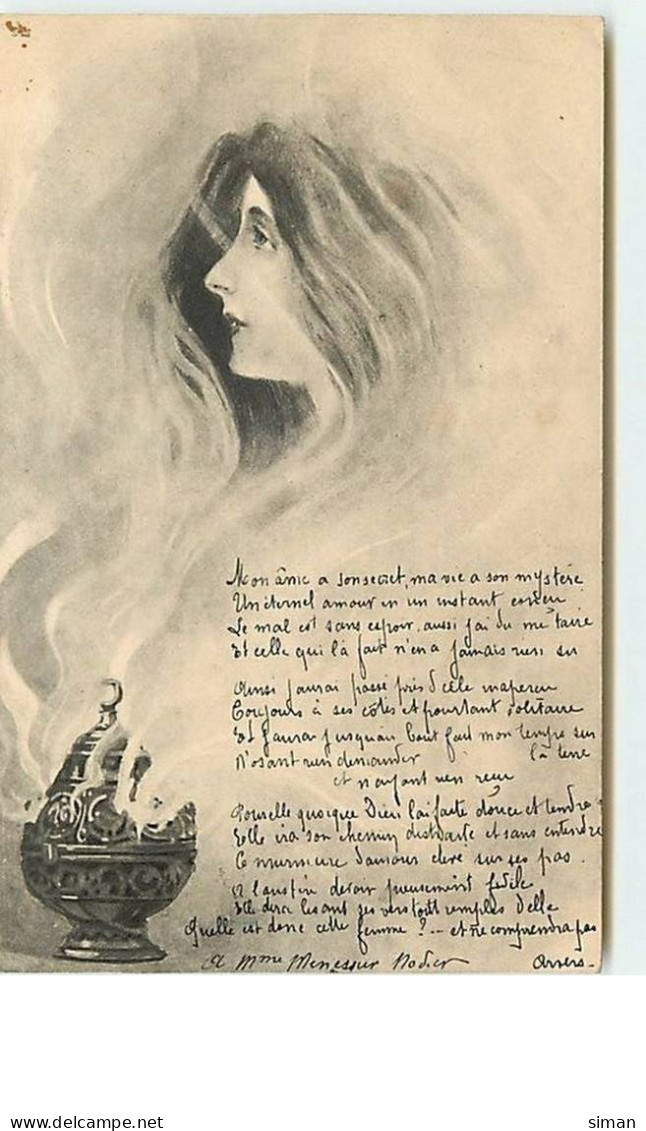 Mon âme a son secret, ma vie a son mystère
Un éternel amour en un instant conçu
Le mal est sans espoir, aussi j'ai du me taire
Et celle qui l'a fait n'en a jamais rien su
Ainsi j'aurai passé près d'elle inaperçu
Toujours à ses côtés et pourtant solitaire
Et j'aurai jusqu'au bout fait mon temps sur
la terre
N'osant rien demander
et n'ayant rien reçu
Pour elle quoique Dieu l'ai faite douce et tendre
Elle ira son chemin distraite et sans entendre
Ce murmure d'amour élevé sur ses pas.
A l'austère devoir pieusement fidèle
Elle dira lisant ses vers tout remplis d'elle
Quelle est donc cette femme ? -- et ne comprendra pas
A Mme Menessier Nodier
Arvers -
siman